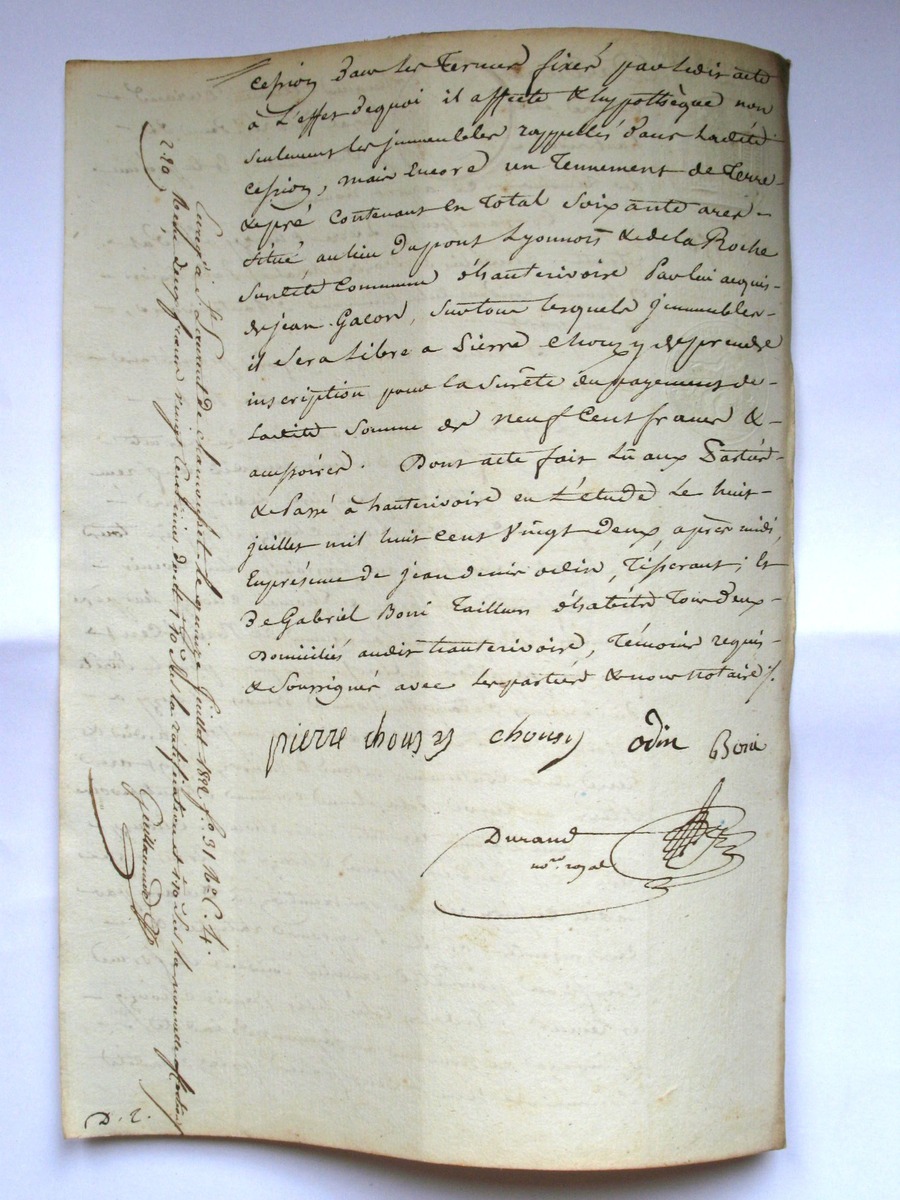 cession dans les termes fixés par ledit acte
à L'effet dequoi il affecte & hypothèque non
seulement les jmmeubles rappellés dans Ladite
cession, mais Encore un Tennement de Terre
& pré contenant En Total Soixante ares
situé au lieu dupont Lyonnois & de la Roche
Sur Commune d'hauterivoire Par lui acquis
de jean Gacon, sur tous lesquels jmmeubles
il sera Libre a Pierre Chouzy de prendre
inscription pour la sûreté du payement de
Ladite somme de neuf Cent francs &
accessoires. Dont acte fait Lu aux Parties
& Passé à hauterivoire en L'étude Le huit
juillet mil huit cent Vingt deux, après midi,
En présence de jean denis odin, Tisserant; Et
De Gabriel Boni Tailleur d'habits Tous deux
Domiciliés audit hauterivoire, Témoins requis
& Soussignés avec Les parties & nous notaire /.
pierre chouzy chousy odin Boni
Durand
no.re royal
Enreg.é à St Laurent de chamousset le quinze juillet 1822 f.o 31 R.o C. 4.
2.20 Reçu deux francs vingt Centimes dont 1.10 sur la ratification et 1.10 sur la nouvelle
Guillaumed
D. 2.